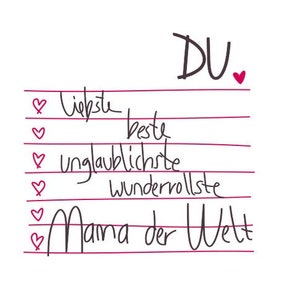 DU
liebste
beste
unglaublichste
wundervollste
Mama der Welt